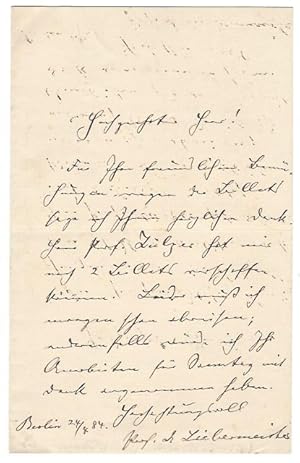 Hochgeehrter Herr!
Für Ihre freundlichen Bemü-
hungen wegen der Billets
sage ich Ihnen herzlichen Dank.
Herr Prof. hat mir
noch 2 Billets verschaffen
können. Leider muß ich
morgen schon abreisen;
andernfalls würde ich Ihr
Anerbieten für Samstag mit
Dank angenommen haben.
Hochachtungsvoll
Berlin 24/ 84. Prof. Dr Liebermeister